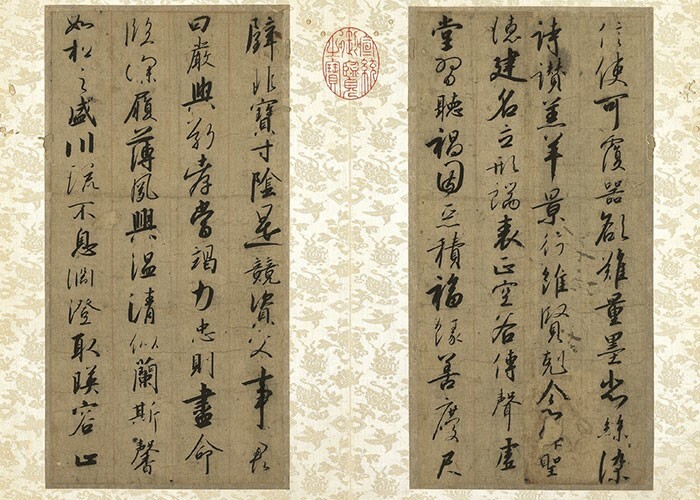 信使可覆器欲難量墨悲絲染
詩讚羔羊景行維賢剋念作聖
德建名立形端表正空谷傳聲虛
堂習聽禍因惡積福緣善慶尺
宣統
御覽
之寶
璧非寶寸陰是競資父事君
曰嚴與敬孝當竭力忠則盡命
臨深履薄夙興溫清似蘭斯馨
如松之盛川流不息淵澄取暎容止